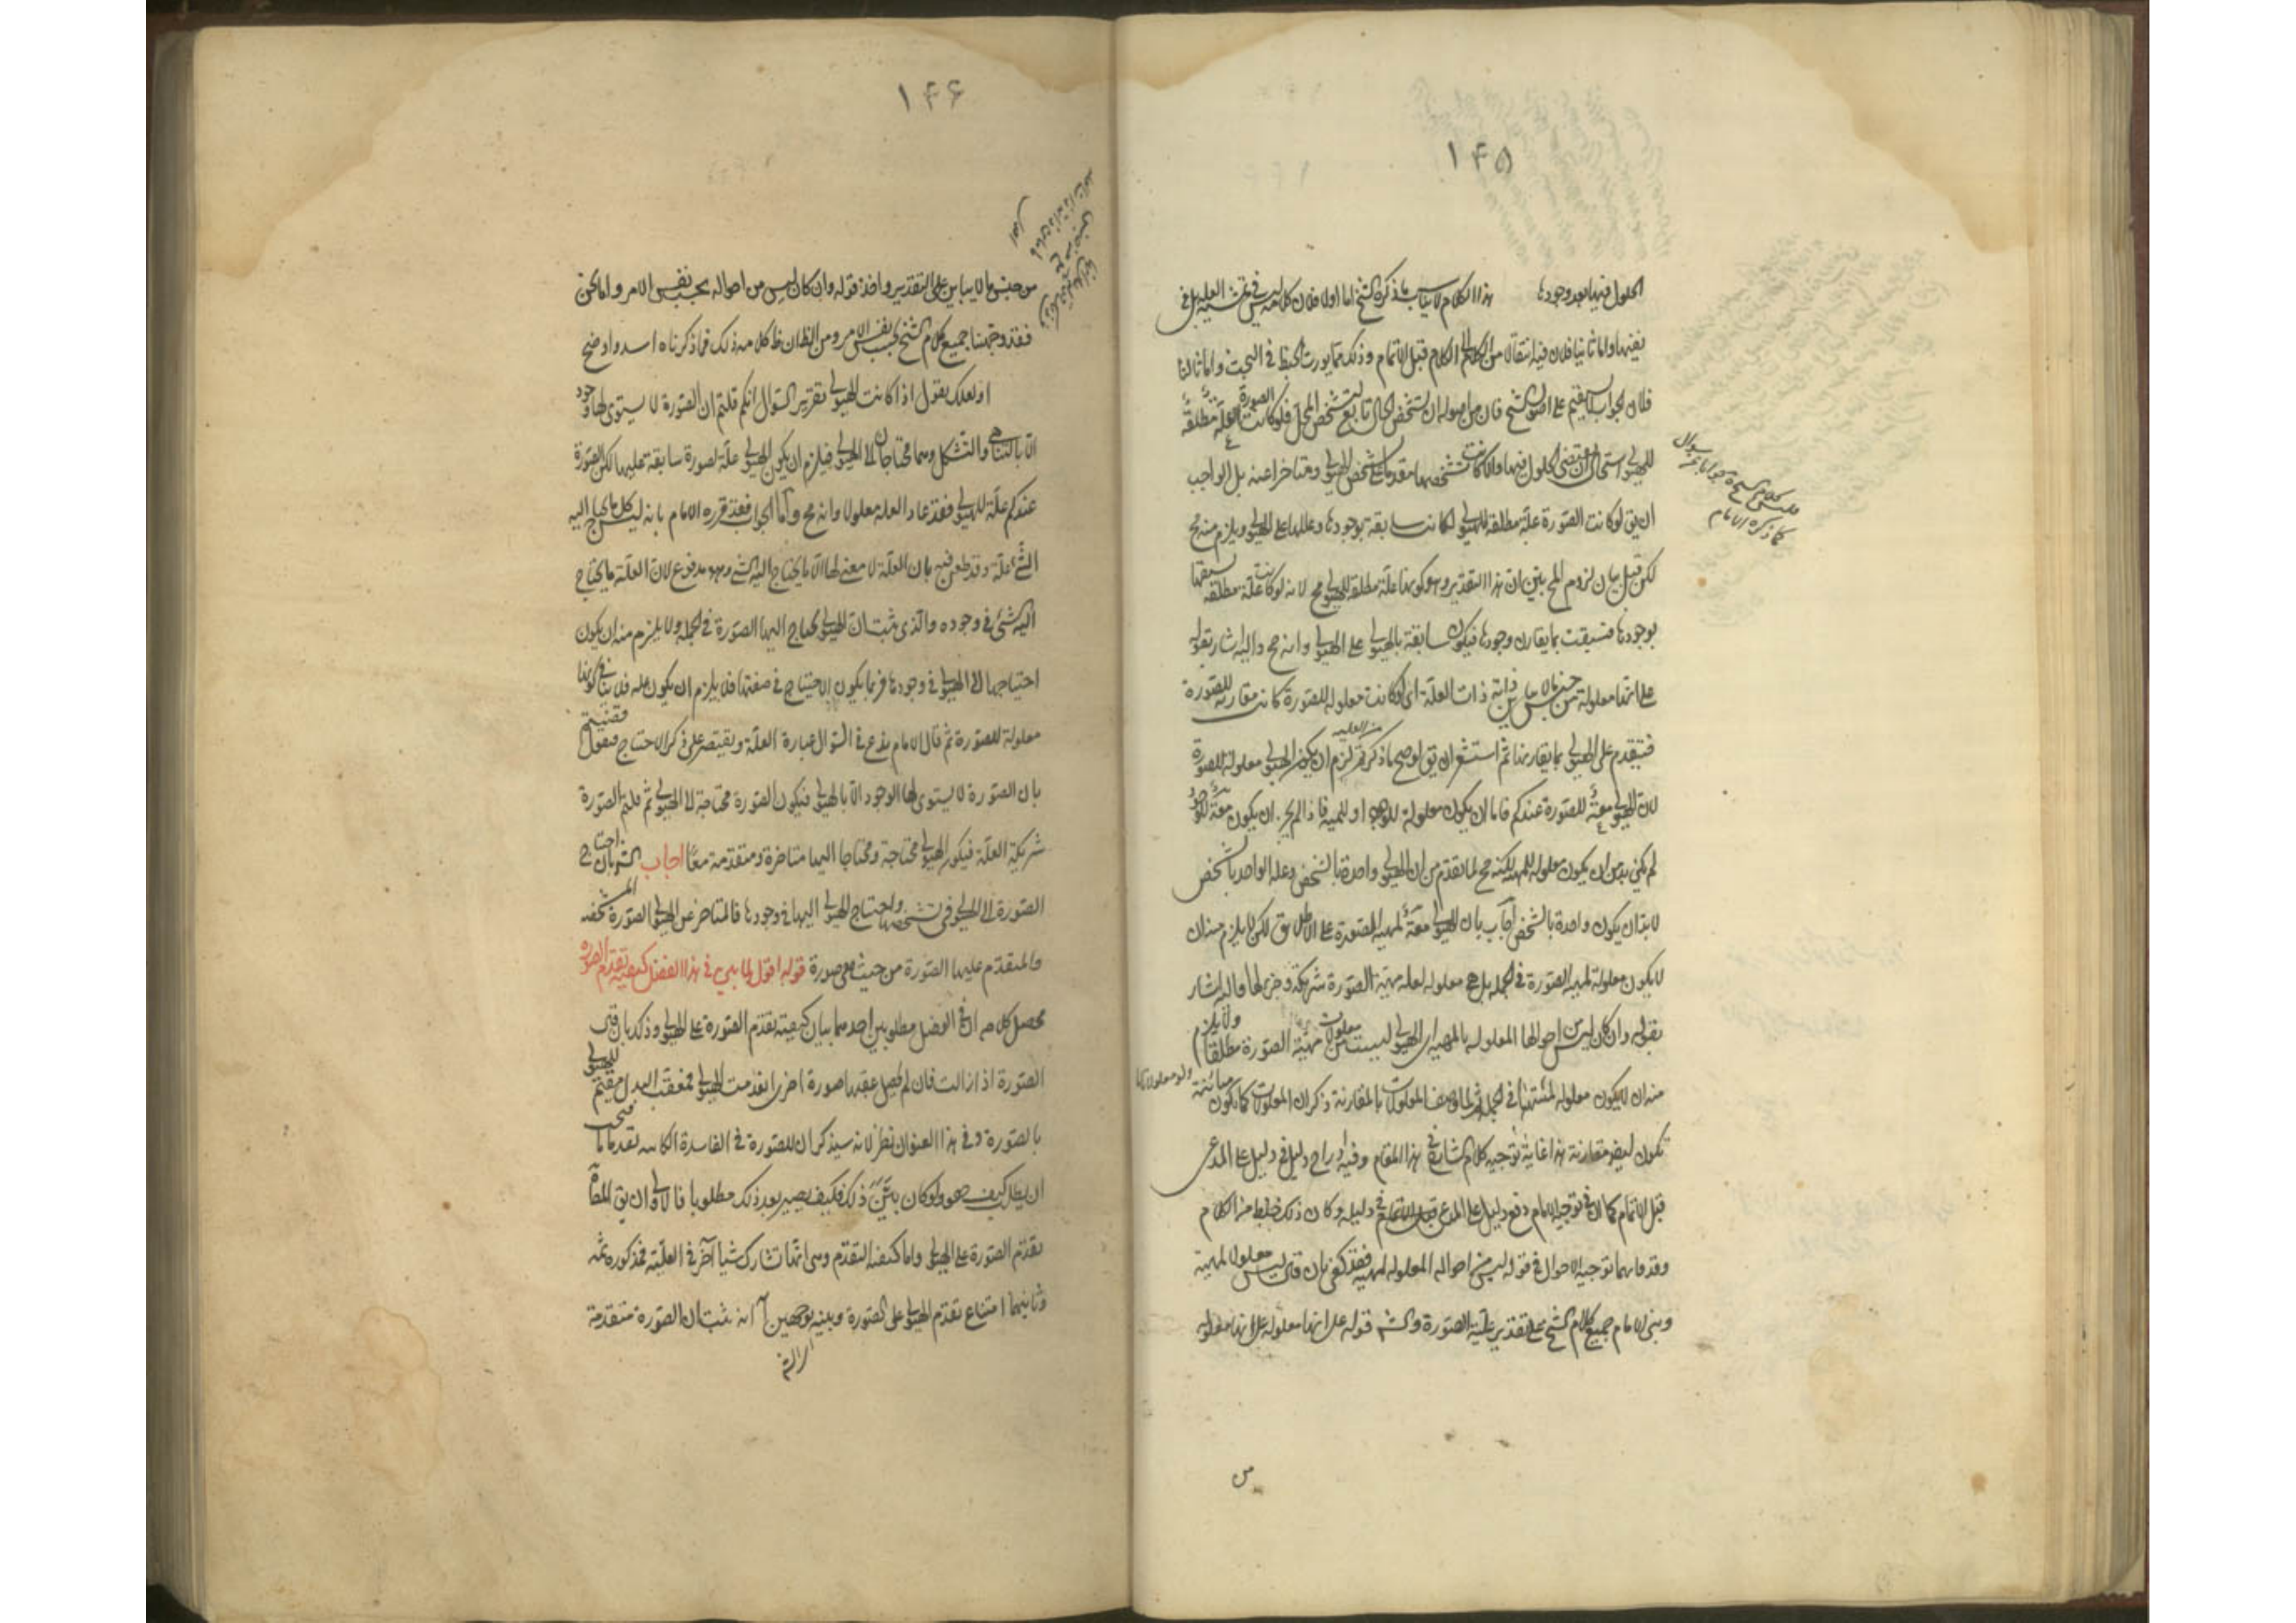 ١٤٥
الحلول فيها بعد وجودها هذا الكلام لا يناسب ما ذكره الشيخ اما اولا فلان كلامه ليس في تمشية العلية بل في
نفيها واما ثانيا فلان فيه انتقالا من الكلام الى الكلام قبل الاتمام وذلك مما يورث الخبط في البحث واما ثالثا
فلان الجواب لا يستقيم على اصول الشيخ فان من اصوله ان تشخص الحال تابع لتشخص المحل فلو كانت الصورة علة مطلقة
للهيولى استحال ان يقتضي الحلول فيها والا لكانت تشخصها مقدما على تشخص الهيولى ومتاخرا عنه بل الواجب
ان يق لو كانت الصورة علة مطلقة للهيولى لكانت سابقة بوجودها وعللها على الهيولى ويلزم منه مح
لكن قبل بيان لزوم المح بين ان هذا التقدير وهو كونها علة مطلقة للهيولى مح لانه لو كانت علة مطلقة لسبقتها
بوجودها فسبقت بما يقارن وجودها فيكون سابقة بالهيولى على الهيولى وانه مح واليه اشار بقوله
على انها معلولة من جنس ما لا يباين ذاته ذات العلة اى لو كانت معلولة للصورة كانت مقارنة للصورة
فتتقدم على الهيولى بما يقارنها ثم استشعر ان يق لو صح ما ذكرتم لزم ان يكون الهيولى معلولة للصورة
لان الهيولى عندكم فاما ان يكون معلولة للوجود او للمهية فاذا لم يجز ان يكون
لم يكن بد من ان يكون معلولة للمهية لكنه مح لما تقدم من ان الهيولى واحدة بالشخص وعلة الواحد بالشخص
لابد ان يكون واحدة بالشخص اجاب بان الهيولى لمهية الصورة على الاطلاق لكن لا يلزم منه ان
لا يكون معلولة لمهية الصورة في الجملة بل هي معلولة لعلة مهية الصورة شريكة وجزء لها واليه اشار
بقوله وان كان ليس من احوالها المعلولة بالمهية اى الهيولى ليست من معلولات مهية الصورة مطلقا ولا يلزم
منه ان لا يكون معلولة لمهيتها في الجملة ثم لما وصف المعلولات بالمقارنة ذكر ان المعلولات كما يكون مباينة
تكون ايض مقارنة هذا غاية توجيه كلام الشارح في هذا المقام وفيه ادراج دليل في دليل على المدعى
قبل الاتمام كما ان في توجيه الامام دفع دليل على المدعى قبل الاتمام في دليله وكان ذلك خبط من الكلام
وقد فاتهما توجيه الاحوال في قوله ليس من احواله المعلولة لمهيته فقد كفى بان يق ليس معلولا لمهيته
وبنى الامام جميع كلام الشيخ على تقدير علية الصورة والش قوله على انها معلولة على انها معلولة
فليس كلام الشيخ جوابا عن سوال
كما ذكره الامام
من
١٤٦
من جنس ما لا يباين على التقدير واخذ قوله وان كان ليس من احواله بحسب نفس الامر واما نحن
فقد وجهنا جميع كلام الشيخ بحسب نفس الامر ومن الظان كلامه ذلك فما ذكرناه اسد واوضح
او لعلك تقول اذا كانت الهيولى تقرير السوال انكم قلتم ان الصورة لا يستوى لها وجود
الا بالتناهي والتشكل وهما محتاجان الى الهيولى فيلزم ان يكون الهيولى علة لصورة سابقة عليها لكن الصورة
عندكم علة للهيولى فقد عاد العلة معلولا وانه مح واما الجواب فقد قرره الامام بانه ليس كل ما يحتاج اليه
الشئ علة وقد طعن فيه بان العلة لا معنى لها الا ما يحتاج اليه الشئ وهو مدفوع لان العلة ما يحتاج
اليه الشئ في وجوده والذى ثبت ان الهيولى يحتاج اليها الصورة في الجملة ولا يلزم منه ان يكون
احتياجها الى الهيولى في وجودها فربما يكون الاحتياج في صفتها فلا يلزم ان يكون علة فلا ينافي كونها
معلولة للصورة ثم قال الامام يدع في السوال عبارة العلة ويقتصر على ذكر الاحتياج فنقول قضيتم
بان الصورة لا يستوى لها الوجود الا بالهيولى فيكون الصورة محتاجة الى الهيولى ثم قلتم الصورة
شريكة العلة فيكون الهيولى محتاجة ومحتاجا اليها متاخرة ومتقدمة معا اجاب الش بان احتياج
الصورة الى الهيولى في تشخصها واحتياج الهيولى اليها في وجودها فالمتاخر عن الهيولى الصورة المشخصة
والمتقدم عليها الصورة من حيث هي صورة قوله اقول لما بين في هذا الفصل كيفية تقدم الصورة
محصل كلامه ان في الفصل مطلوبين احدهما بيان كيفية تقدم الصورة على الهيولى وذلك بان يق
الصورة اذا زالت فان لم يحصل عقبها صورة اخرى انعدمت الهيولى فمعقب البدل مقيم للهيولى
بالصورة وفي هذا العنوان نظر لانه سيذكر ان للصورة في الفاسدة الكاينة تقدما ما
ان يطلب كيف هو ولو كان بين ذلك فكيف يصير بعد ذلك مطلوبا فالاولى ان يق المط
تقدم الصورة على الهيولى واما كيفية التقدم وهي انها تشارك شيئا آخر في العلية فمذكورة ثمه
وثانيهما امتناع تقدم الهيولى على الصورة وبينه بوجهين آ انه ثبت ان الصورة متقدمة